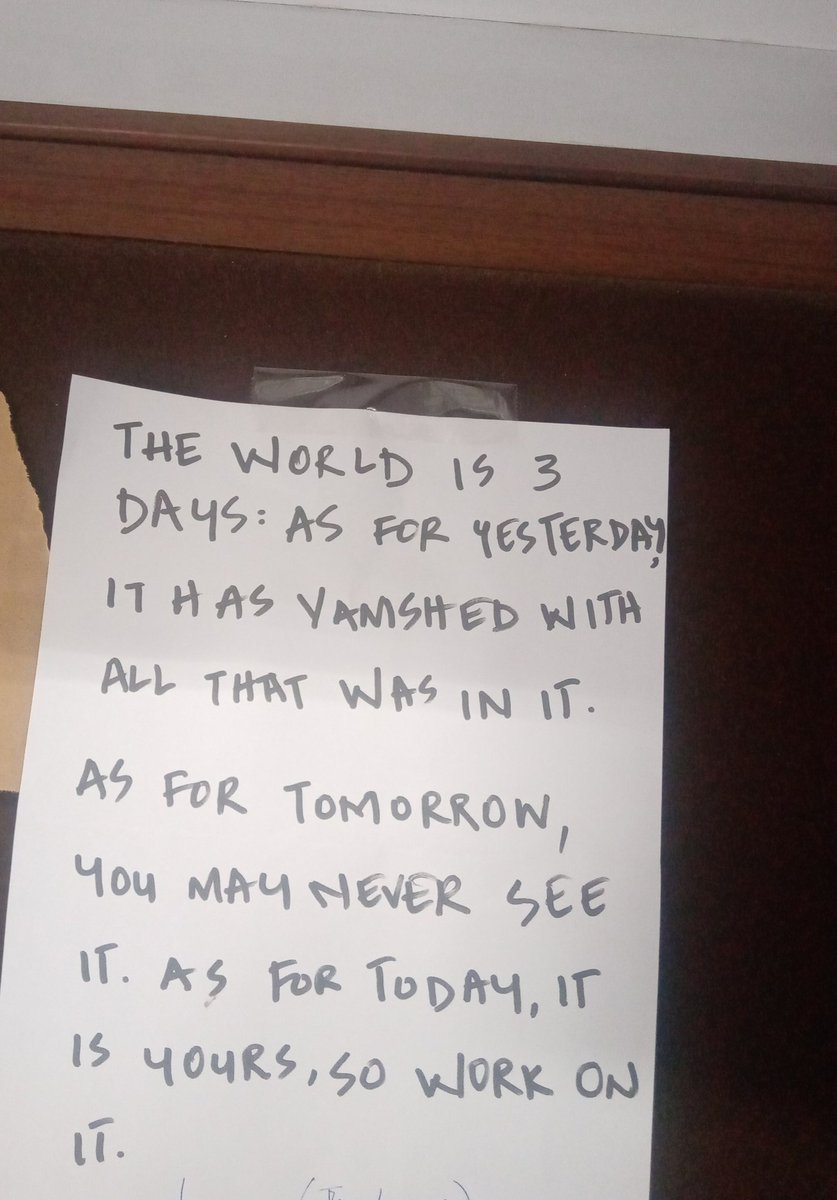 THE WORLD IS 3
DAYS: AS FOR YESTERDAY,
IT HAS VANISHED WITH
ALL THAT WAS IN IT.
AS FOR TOMORROW,
YOU MAY NEVER SEE
IT. AS FOR TODAY, IT
IS YOURS, SO WORK ON
IT.